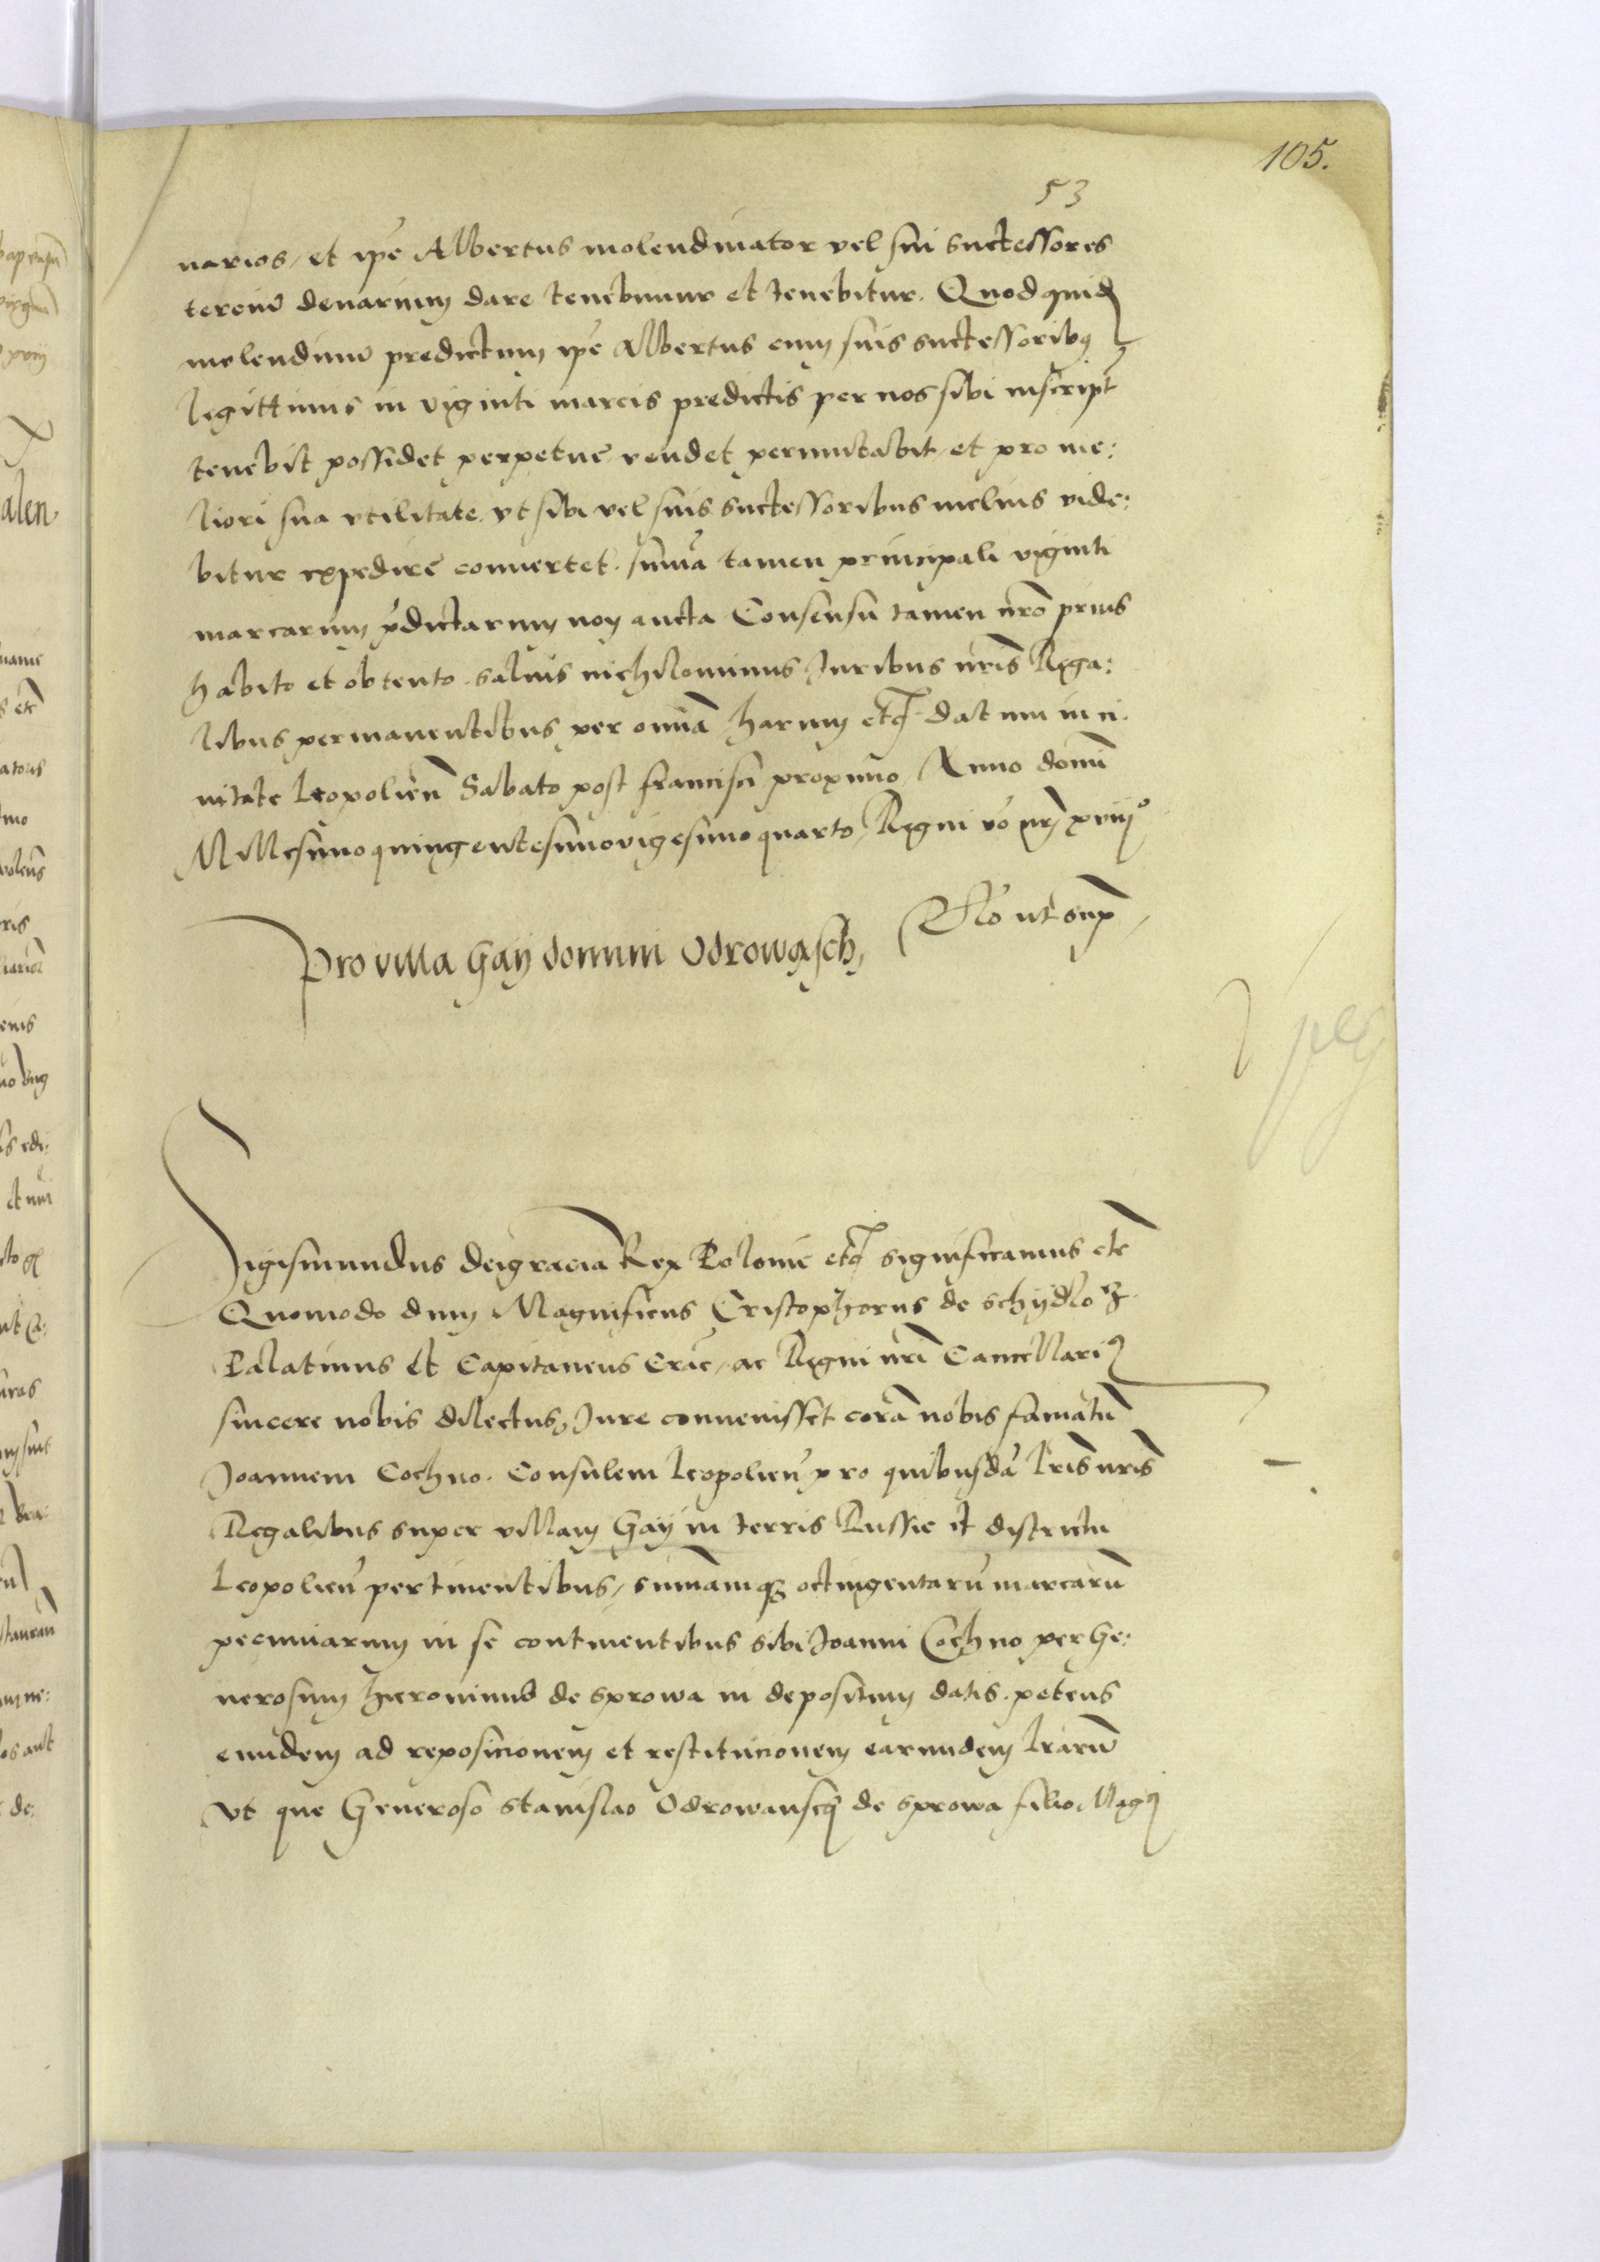 105.
53
narios, et ipē Albertus molendinator vel sui successores
terciū denarium dare tenebuntur et tenebitur. Quod quidē
molendinū predictum ipē Albertus cum suis successoribꝯ
legittimis in viginti marcis predictis per nos sibi inscript
tenebit possidet perpetue vendet permutabit et pro me:
liori sua vtilitate. vt sibi vel suis successoribus melius vide:
bitur expedire conuertet. sum̄a tamen principali viginti
marcarum p̄dictarum non aucta Consensu tamen nr̄o prius
habito et obtento. saluis nichilominus Juribus nr̄is Rega:
libus permanentibus per om̄ia harum etc̄. datum in ci.
uitate Leopolien̄ Sabato post francisci proximo Anno domī
Millesimoquingentesimovigesimoquarto, Regni v̄o nr̄i xviijo
Rlō ut sup̄
Pro villa Gaÿ domini Odrowąsch,
Sigismundus deigracia Rex Polonie etc̄ significamus etc̄
Quomodo dum Magnificus Cristophorus de schÿdloꝫ
Palatinus et Capitaneus Crac̄, ac Regni nr̄i Cancellariꝯ
sincere nobis dilectus, Jure conuenisset corā nobis famatū
Joannem Cochno. Consulem Leopolien̄ pro quibusdā lr̄is nr̄is
Regalibus super villam Gaÿ in terris Russie et districtu
Leopolien̄ pertinentibus, sum̄amqꝫ octingentarū marcarū
pecuniarum in se continentibus sibi Joanni Cochno per Ge:
nerosum hieronimū de sprowa in depositum datis. petens
eundem ad reposicionem et restitucionem earundem lr̄arū
vt que Generoso Stanislao Odrowanscÿ de sprowa filio Magci